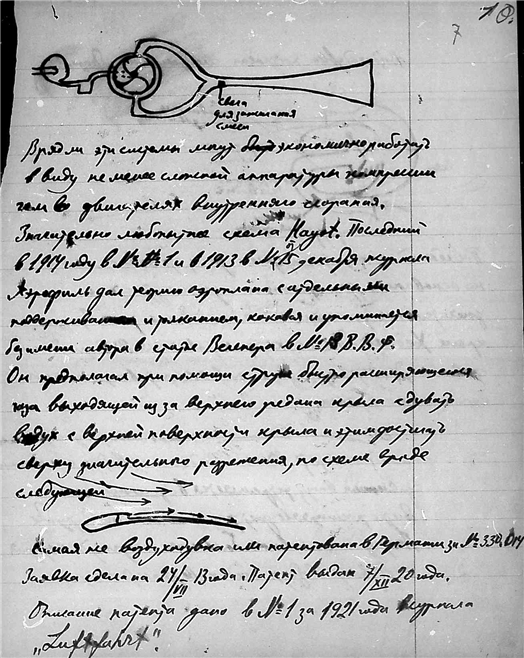 7
свеча
для зажигания
смеси
Врядли эти системы могут экономично работать
в виду не менее сложной аппаратуры
чем в двигателях внутреннего сгорания.
Значительно любопытнее схема Mayot. Последний
в 1914 году в № 1 и в 1913 в № 15 декабря журнала
Аэрофиль дал теорию аэроплана с отдельными
поддерживанием и толканием, каковая и упоминается
без имени автора в статье Вегенера в № 13 В.В.Ф.
Он предполагал при помощи струи быстро расширяющегося
газа выходящей из за верхнего редана крыла сдувать
воздух с верхней поверхности крыла и этим достигать
сверху значительного разрежения, по схеме вроде
следующей
Самая же воздуходувка им патентована в Германии за №
Заявка сделана 24/VII 13 года. Патент выдан 7/XII 20 года.
Описание патента дано в № 1 за 1921 год журнала
„Luftfahrt".